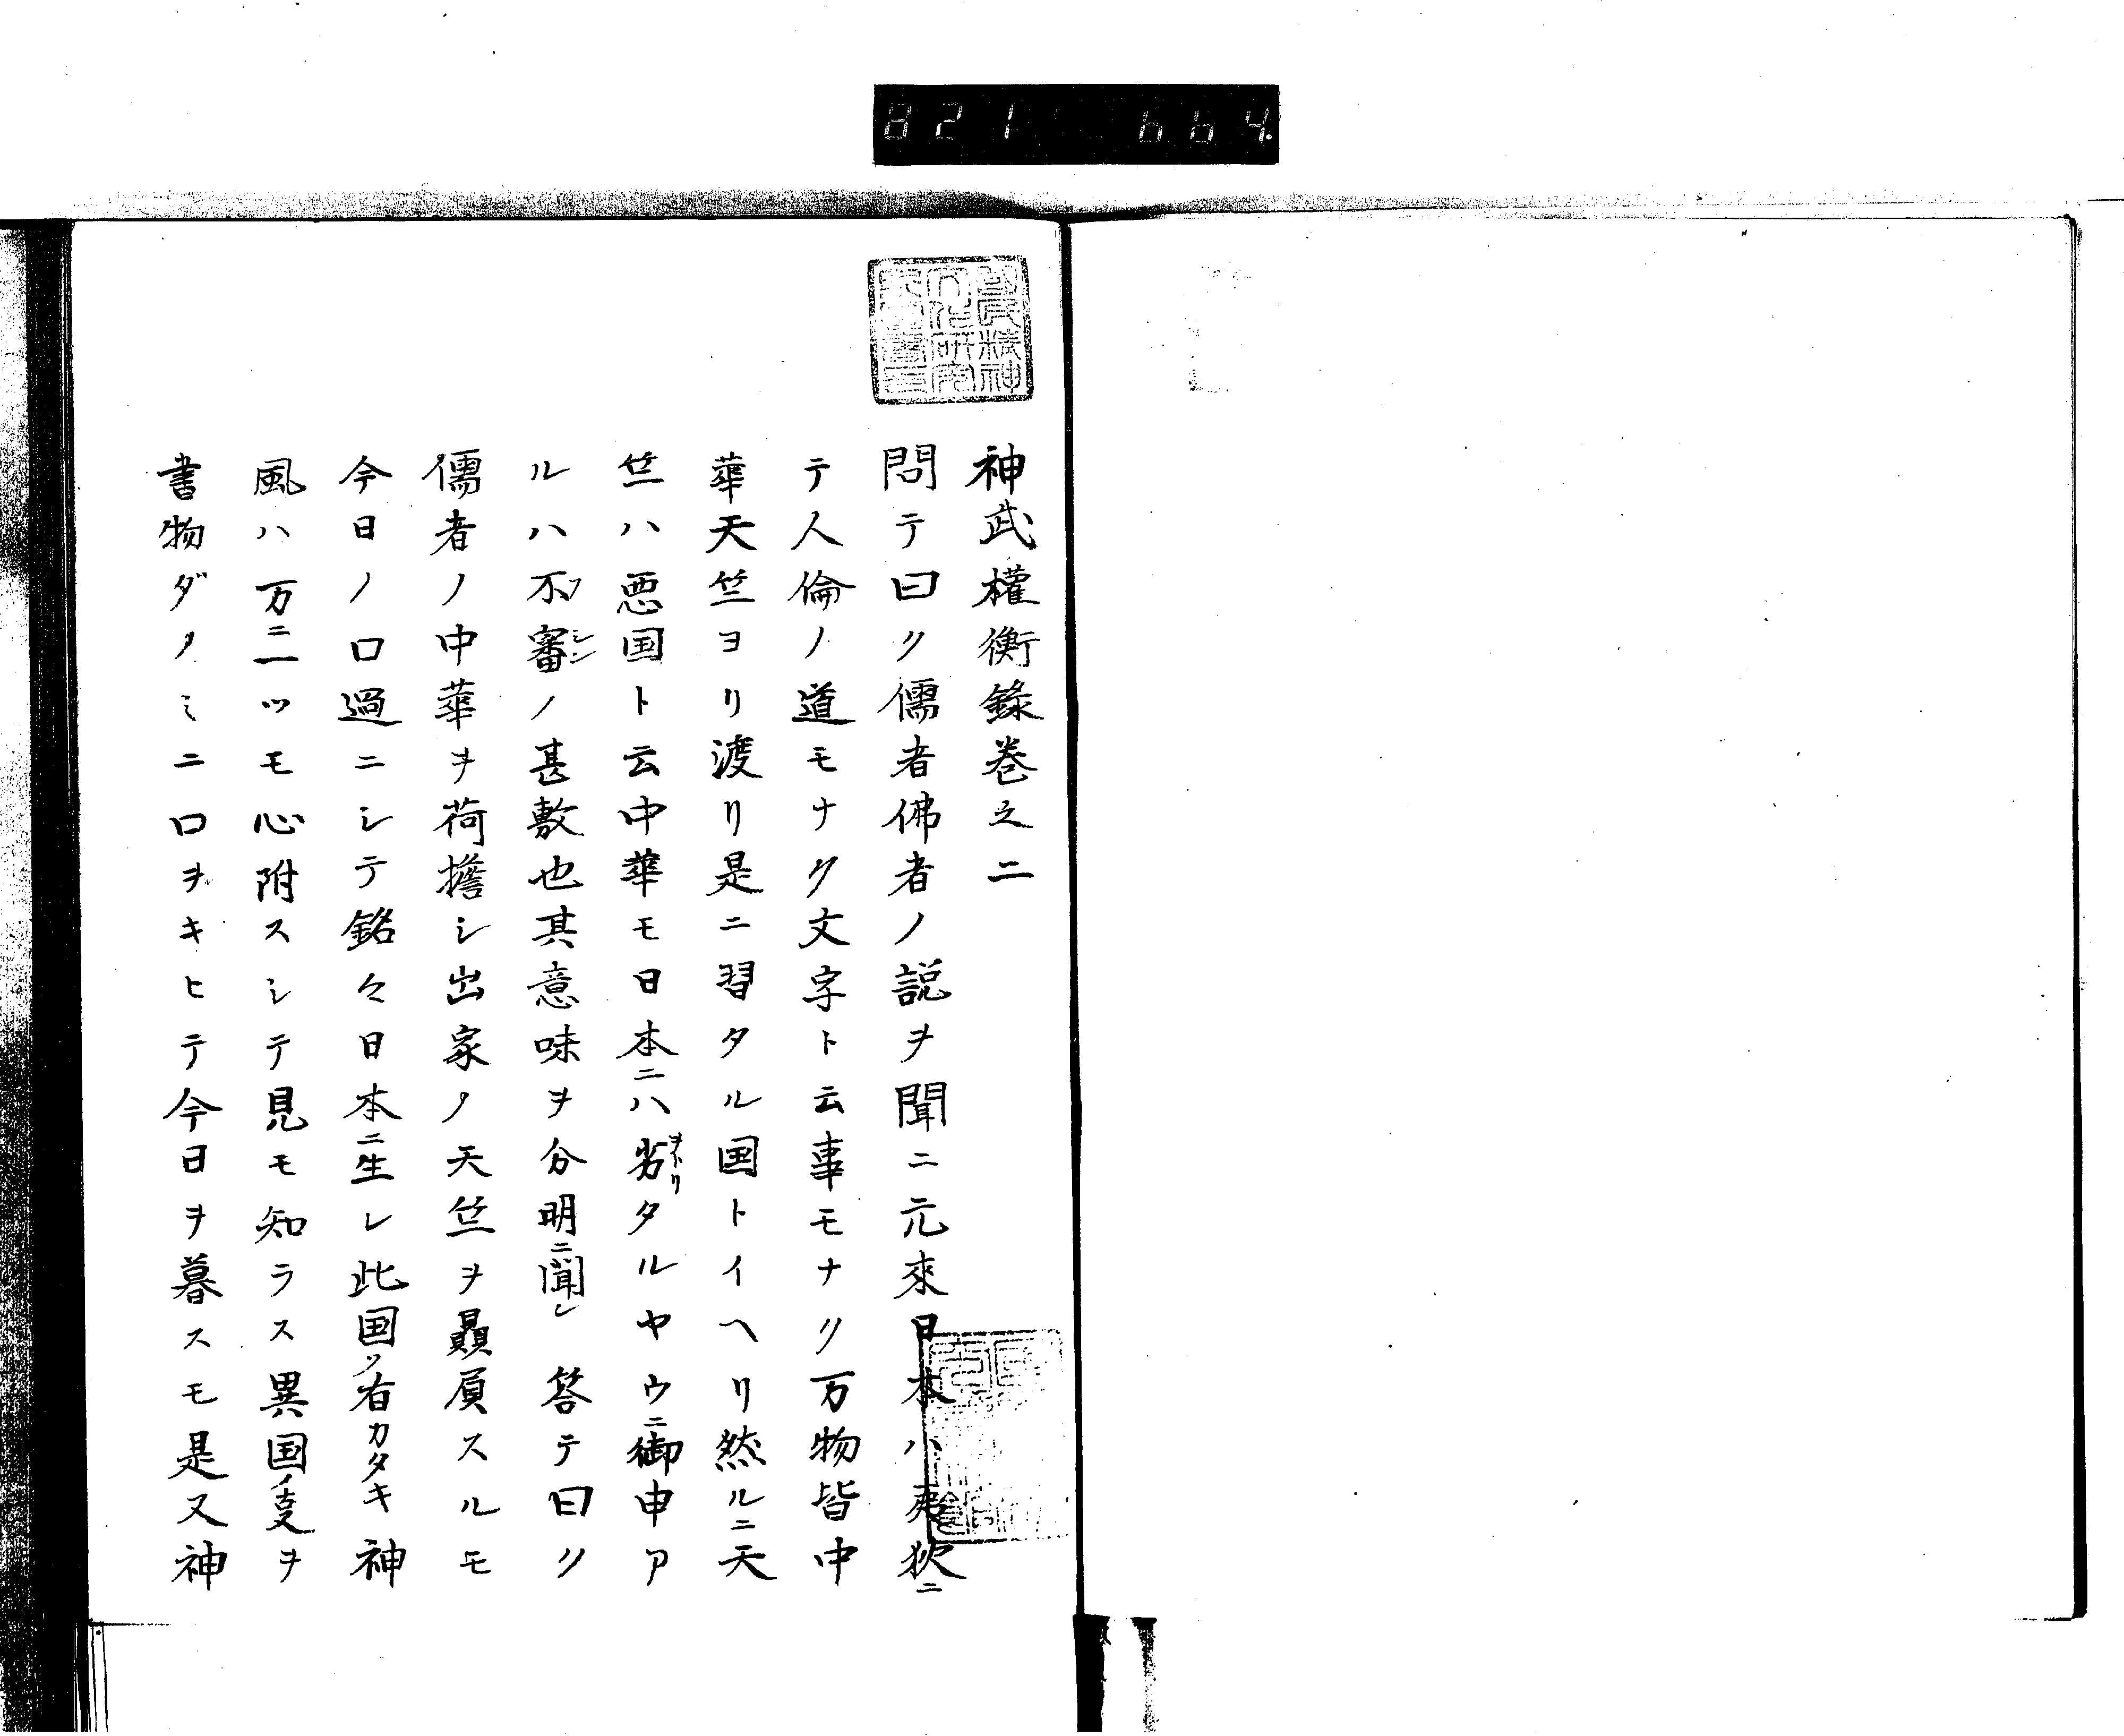 821 664
国民精神
文化研究
所図書印
神武權衡錄巻之二
問テ曰ク儒者佛者ノ説ヲ聞ニ元来日本ハ夷狄ニ
テ人倫ノ道モナク文字ト云事モナク万物皆中
華天竺ヨリ渡リ是ニ習タル国トイヘリ然ルニ天
竺ハ悪国ト云中華モ日本ニハ劣ヲトリタルヤウニ御申ア
ルハ不審フシンノ甚敷也其意味ヲ分明ニ聞レ 答テ曰ク
儒者ノ中華ヲ荷擔シ出家ノ天竺ヲ贔屓スルモ
今日ノ口過ニシテ銘々日本ニ生レ此国ノ有カタキ神
風ハ万ニ一ツモ心附スシテ見モ知ラス異国ノ㕝ヲ
書物ダノミニ口ヲキヒテ今日ヲ暮スモ是又神